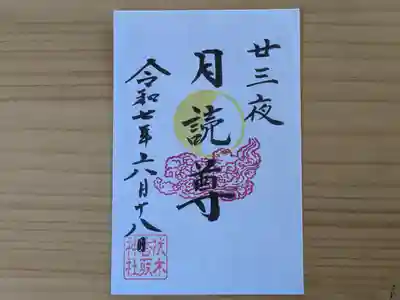 廿三夜
月読尊
令和七年六月廿八日
伏木香取神社